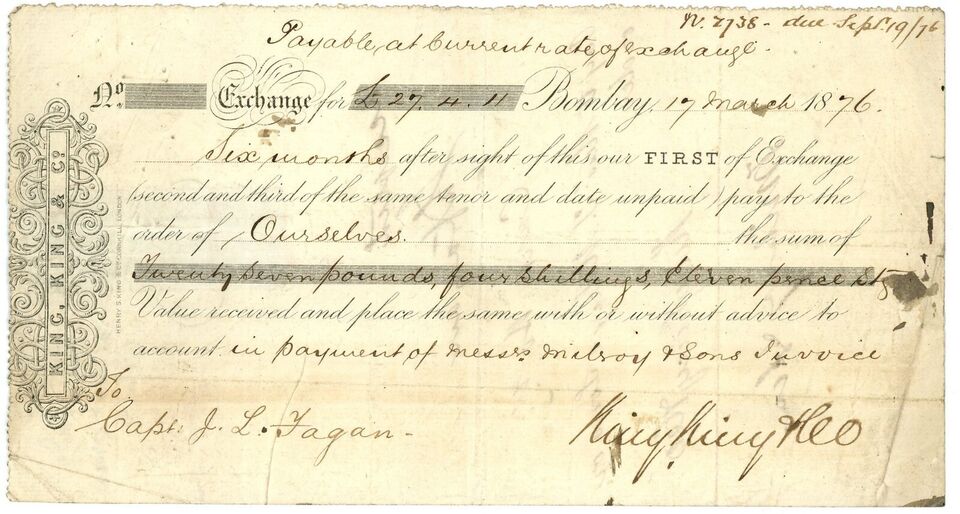 N. 2738 - due Sept. 19/76
Payable at Current rate of exchange.
No. Exchange for £27.4.11 Bombay, 17 March 1876.
Six months after sight of this our FIRST of Exchange
(second and third of the same tenor and date unpaid) pay to the
order of Ourselves. the sum of
Twenty seven pounds, four shillings, Eleven pence
Value received and place the same with or without advice to
account in payment of Messrs Milroy & Sons Invoice
To
Capt: J. L. Fagan-
King King & Co
KING, KING & Co.
HENRY S. KING & Co. CORNHILL, LONDON